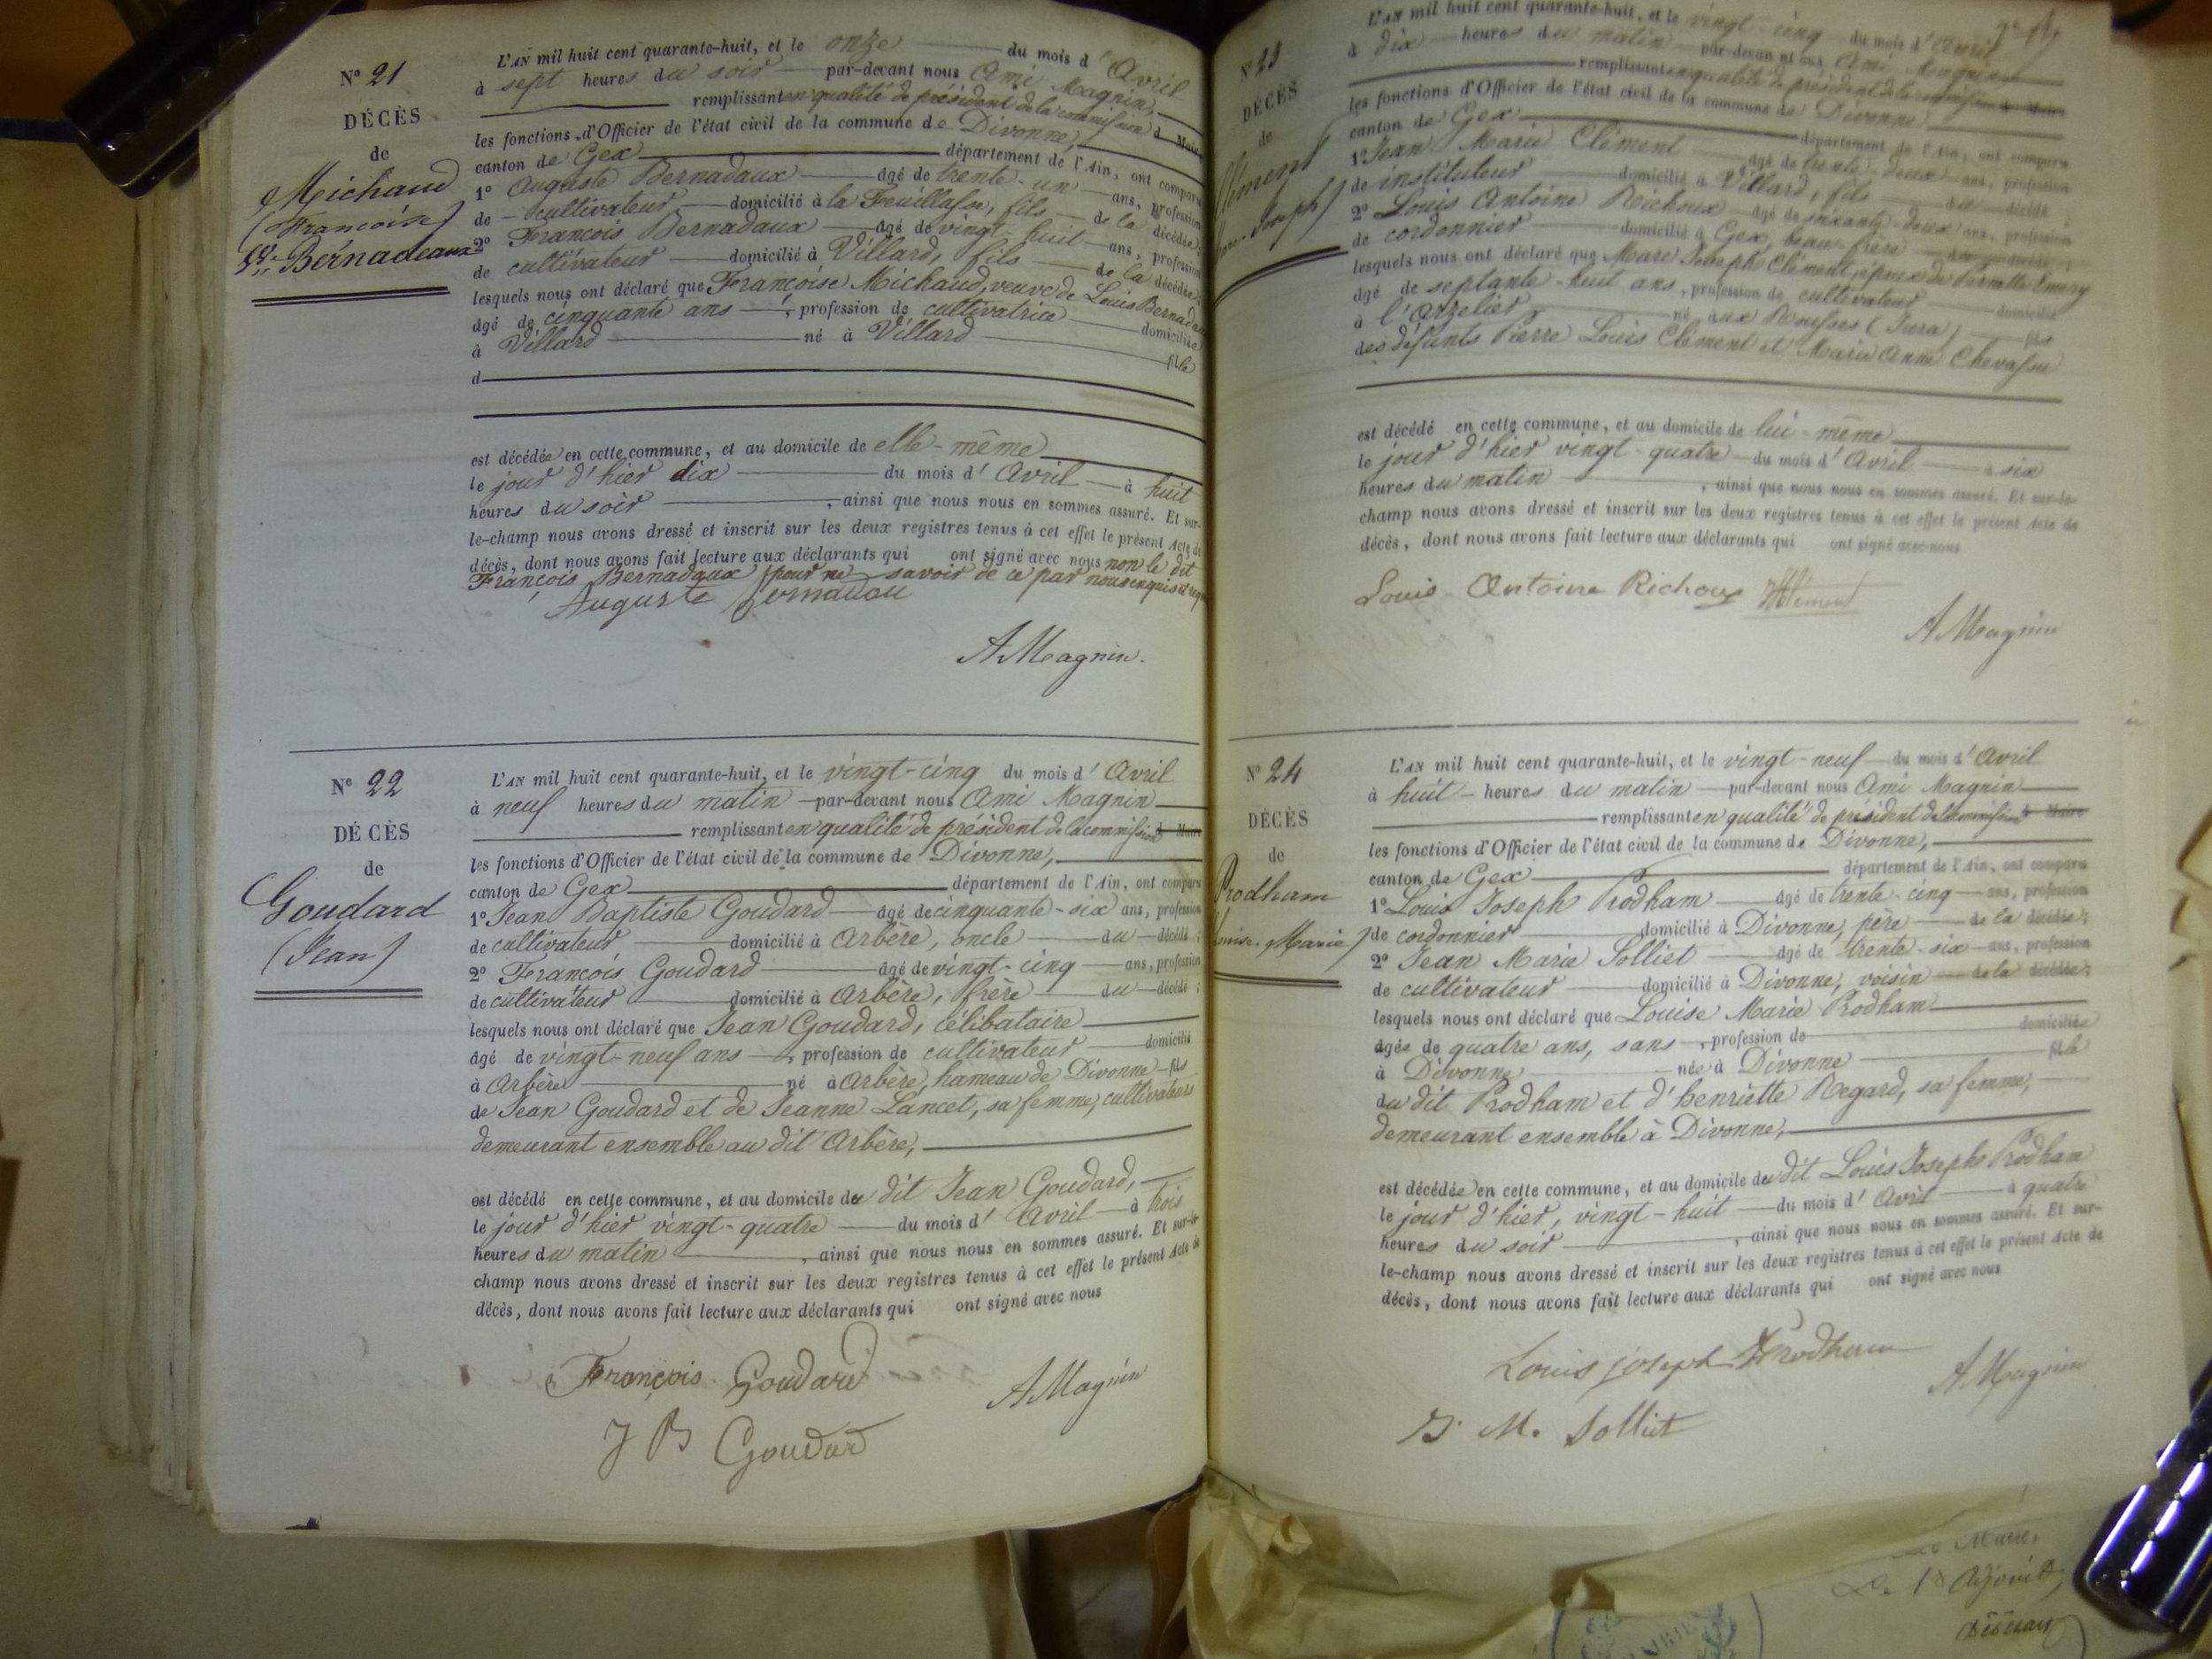 Nº 21
DÉCÈS
de
Michaud
(Françoise)
Vve Bernadeaux
L'AN mil huit cent quarante-huit, et le onze du mois d'Avril
à sept heures du soir par-devant nous Ami Magnin,
remplissant en qualité de président de la commission d Maire
les fonctions d'Officier de l'état civil de la commune de Divonne,
canton de Gex département de l'Ain, ont comparu
1º Auguste Bernadaux âgé de trente-un ans, profession
de cultivateur domicilié à la Feuillasse, fils de la décédée
2º François Bernadaux âgé de vingt-huit ans, profession
de cultivateur domicilié à Villard, fils de la décédée
lesquels nous ont déclaré que Françoise Michaud, veuve de Louis Bernadaux
âgé de cinquante ans, profession de cultivatrice domiciliée
à Villard né à Villard fille
d
est décédée en cette commune, et au domicile de elle-même
le jour d'hier dix du mois d'Avril à huit
heures du soir, ainsi que nous nous en sommes assuré. Et sur-
le-champ nous avons dressé et inscrit sur les deux registres tenus à cet effet le présent Acte de
décès, dont nous avons fait lecture aux déclarants qui ont signé avec nous non le dit
François Bernadaux pour ne savoir de ce par nous enquis et
Auguste
AMagnin.
Nº 22
DÉCÈS
de
Goudard
(Jean)
L'AN mil huit cent quarante-huit, et le vingt-cinq du mois d'Avril
à neuf heures du matin par-devant nous Ami Magnin
remplissant en qualité de président de la commission d Maire
les fonctions d'Officier de l'état civil de la commune de Divonne,
canton de Gex département de l'Ain, ont comparu
1º Jean Baptiste Goudard âgé de cinquante-six ans, profession
de cultivateur domicilié à Arbère, oncle du décédé;
2º François Goudard âgé de vingt-cinq ans, profession
de cultivateur domicilié à Arbère, frère du décédé;
lesquels nous ont déclaré que Jean Goudard, célibataire
âgé de vingt-neuf ans, profession de cultivateur domicilié
à Arbère né à Arbère, hameau de Divonne fils
de Jean Goudard et de Jeanne Lancet, sa femme, cultivateurs
demeurant ensemble au dit Arbère,
est décédé en cette commune, et au domicile du dit Jean Goudard,
le jour d'hier vingt-quatre du mois d'Avril à trois
heures du matin, ainsi que nous nous en sommes assuré. Et sur-le-
champ nous avons dressé et inscrit sur les deux registres tenus à cet effet le présent Acte de
décès, dont nous avons fait lecture aux déclarants qui ont signé avec nous
François Goudard
AMagnin
J B Goudard
Nº 23
DÉCÈS
de
Clément
Joseph)
L'AN mil huit cent quarante-huit, et le vingt-cinq du mois d'Avril
à dix heures du matin par-devant nous Ami Magnin
remplissant en qualité de président de la commission d Maire
les fonctions d'Officier de l'état civil de la commune de Divonne
canton de Gex département de l'Ain, ont comparu
1º Jean Marie Clément âgé de trente-deux ans, profession
de instituteur domicilié à Villard, fils du décédé
2º Louis Antoine Richoux âgé de soixante-deux ans, profession
de cordonnier domicilié à Gex, beau-frère du décédé;
lesquels nous ont déclaré que Marc Joseph Clément, époux de Pernette Emery
âgé de septante-huit ans, profession de cultivateur domicilié
à l'Arzelier né aux Rousses (Jura) fils
des défunts Pierre Louis Clément et Marie Anne Chevassu
est décédé en cette commune, et au domicile de lui-même
le jour d'hier vingt-quatre du mois d'Avril à six
heures du matin, ainsi que nous nous en sommes assuré. Et sur-le-
champ nous avons dressé et inscrit sur les deux registres tenus à cet effet le présent Acte de
décès, dont nous avons fait lecture aux déclarants qui ont signé avec nous
Louis Antoine Richoux Clément
AMagnin
Nº 24
DÉCÈS
de
Prodham
Louise-Marie)
L'AN mil huit cent quarante-huit, et le vingt-neuf du mois d'Avril
à huit heures du matin par-devant nous Ami Magnin
remplissant en qualité de président de la commission d Maire
les fonctions d'Officier de l'état civil de la commune de Divonne,
canton de Gex département de l'Ain, ont comparu
1º Louis Joseph Prodham âgé de trente-cinq ans, profession
de cordonnier domicilié à Divonne, père de la décédée;
2º Jean Marie Solliet âgé de trente-six ans, profession
de cultivateur domicilié à Divonne, voisin de la décédée;
lesquels nous ont déclaré que Louise Marie Prodham
âgée de quatre ans, sans, profession de domiciliée
à Divonne née à Divonne fille
du dit Prodham et d'henriette Regard, sa femme,
demeurant ensemble à Divonne,
est décédée en cette commune, et au domicile du dit Louis Joseph Prodham
le jour d'hier, vingt-huit du mois d'Avril à quatre
heures du soir, ainsi que nous nous en sommes assuré. Et sur-
le-champ nous avons dressé et inscrit sur les deux registres tenus à cet effet le présent Acte de
décès, dont nous avons fait lecture aux déclarants qui ont signé avec nous
Louis joseph Prodham
AMagnin
J. M. Solliet
Maire,
Adjoint,